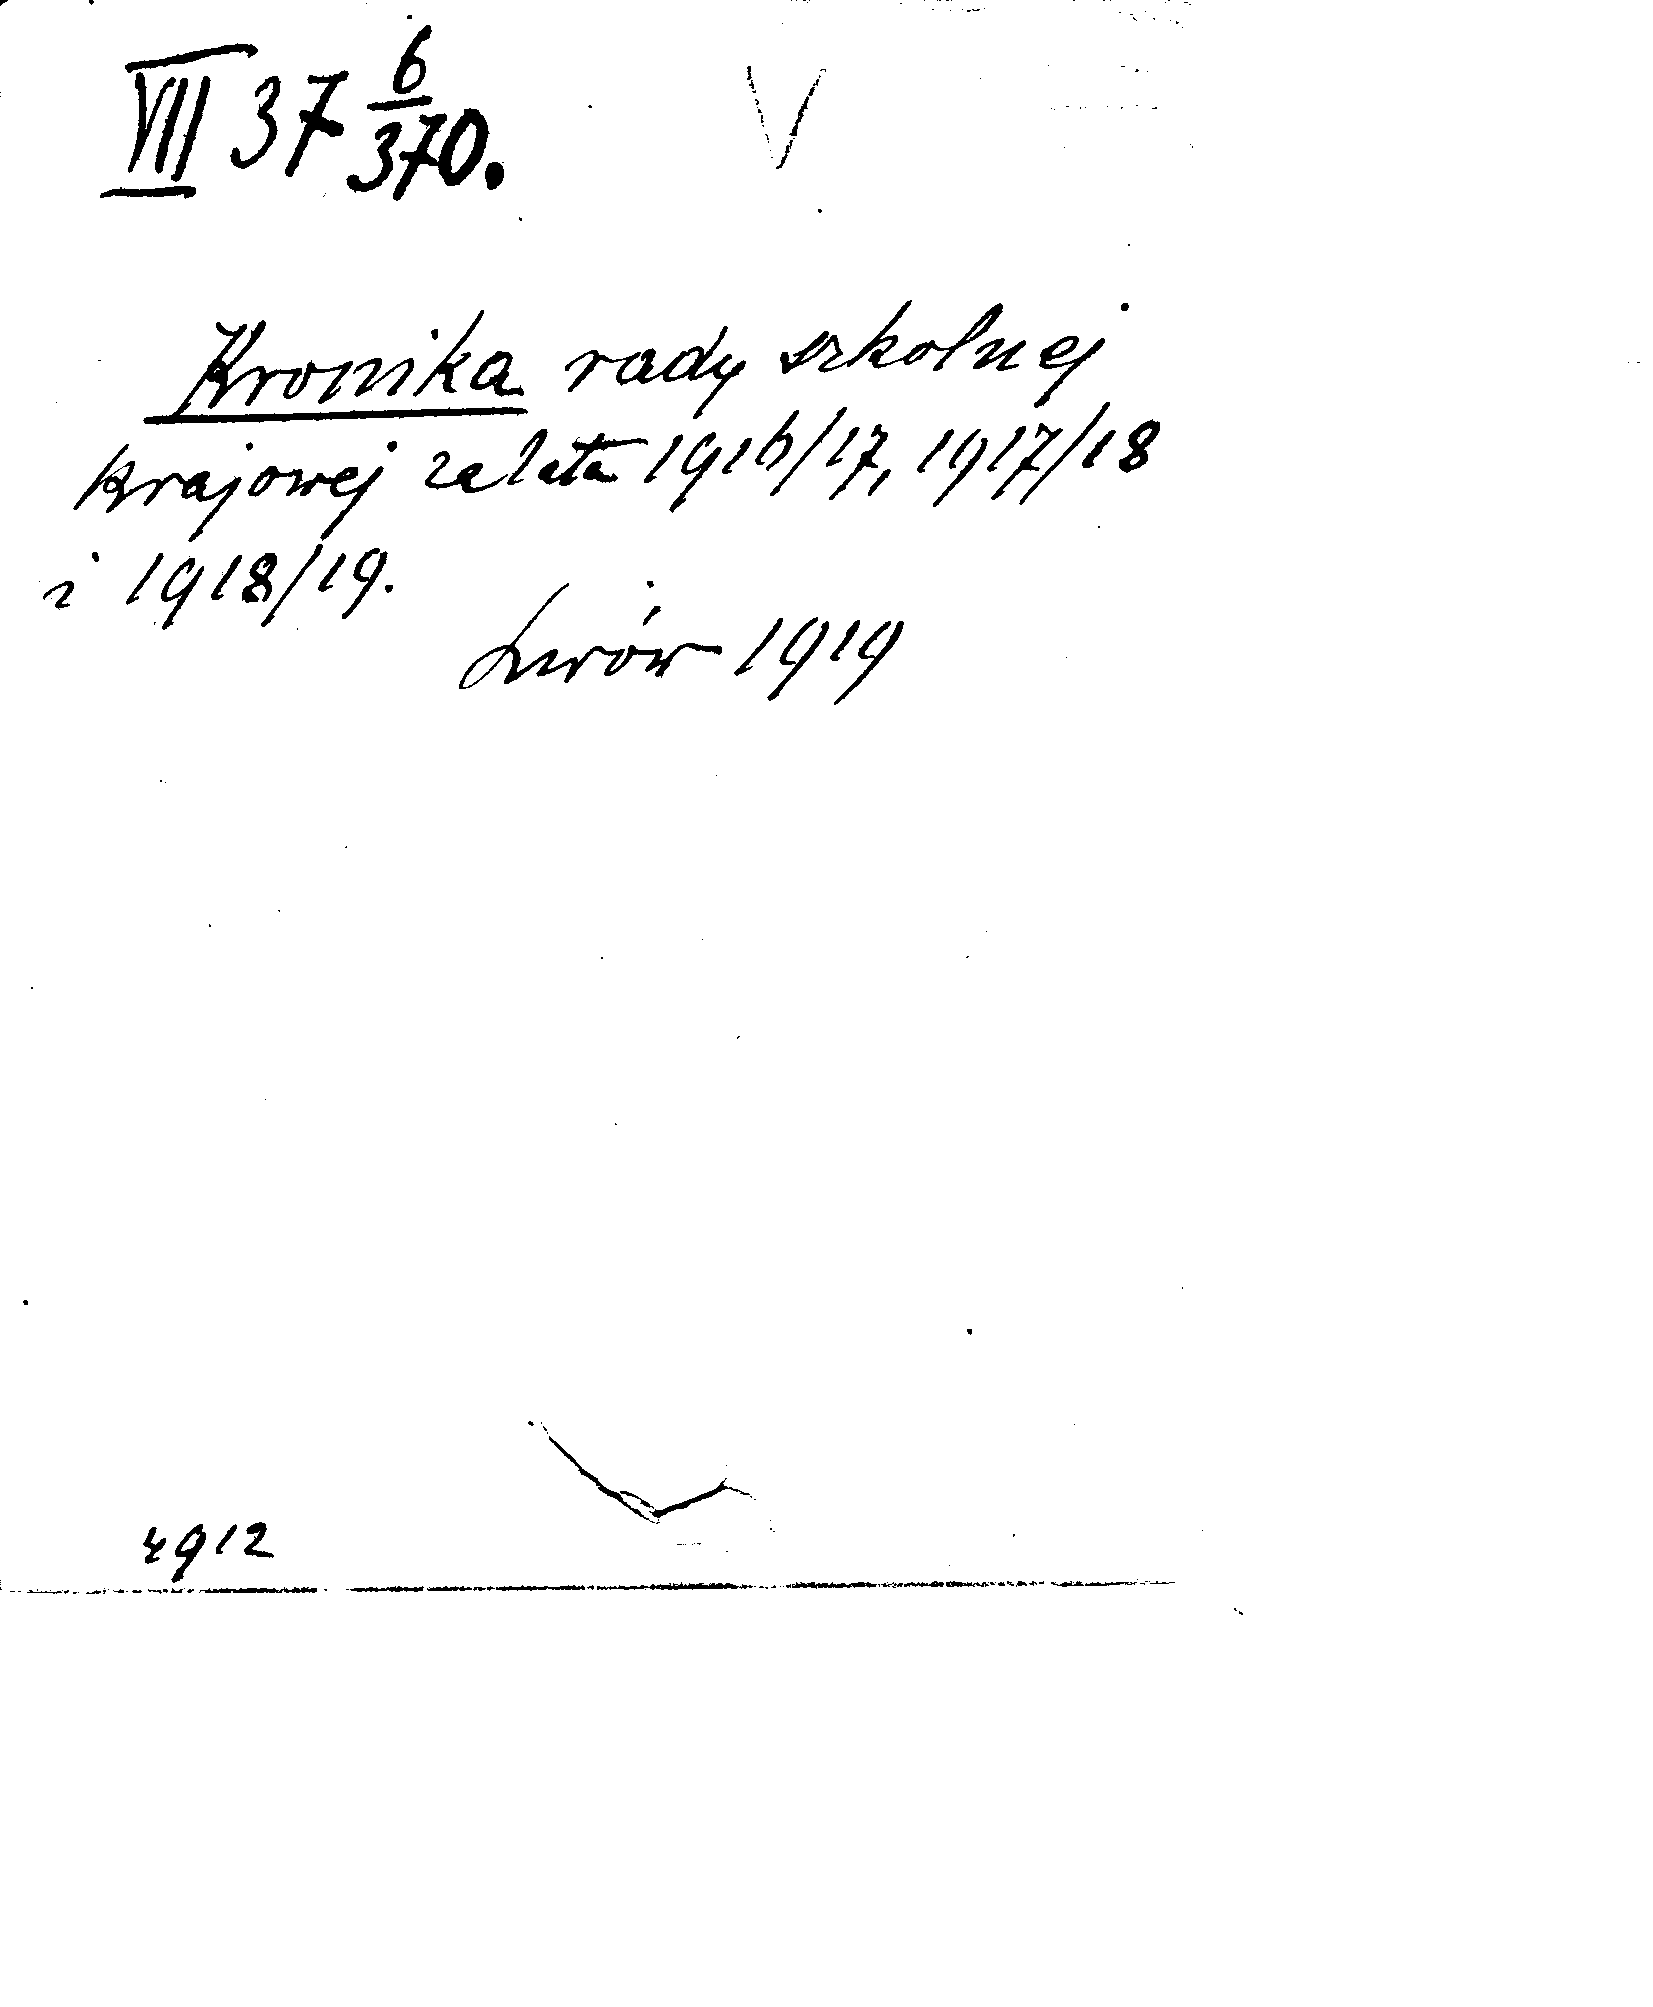 VII 37 6/370.
Kronika rady szkolnej
krajowej za lata 1916/17, 1917/18
i 1918/19.
Lwów 1919
4912